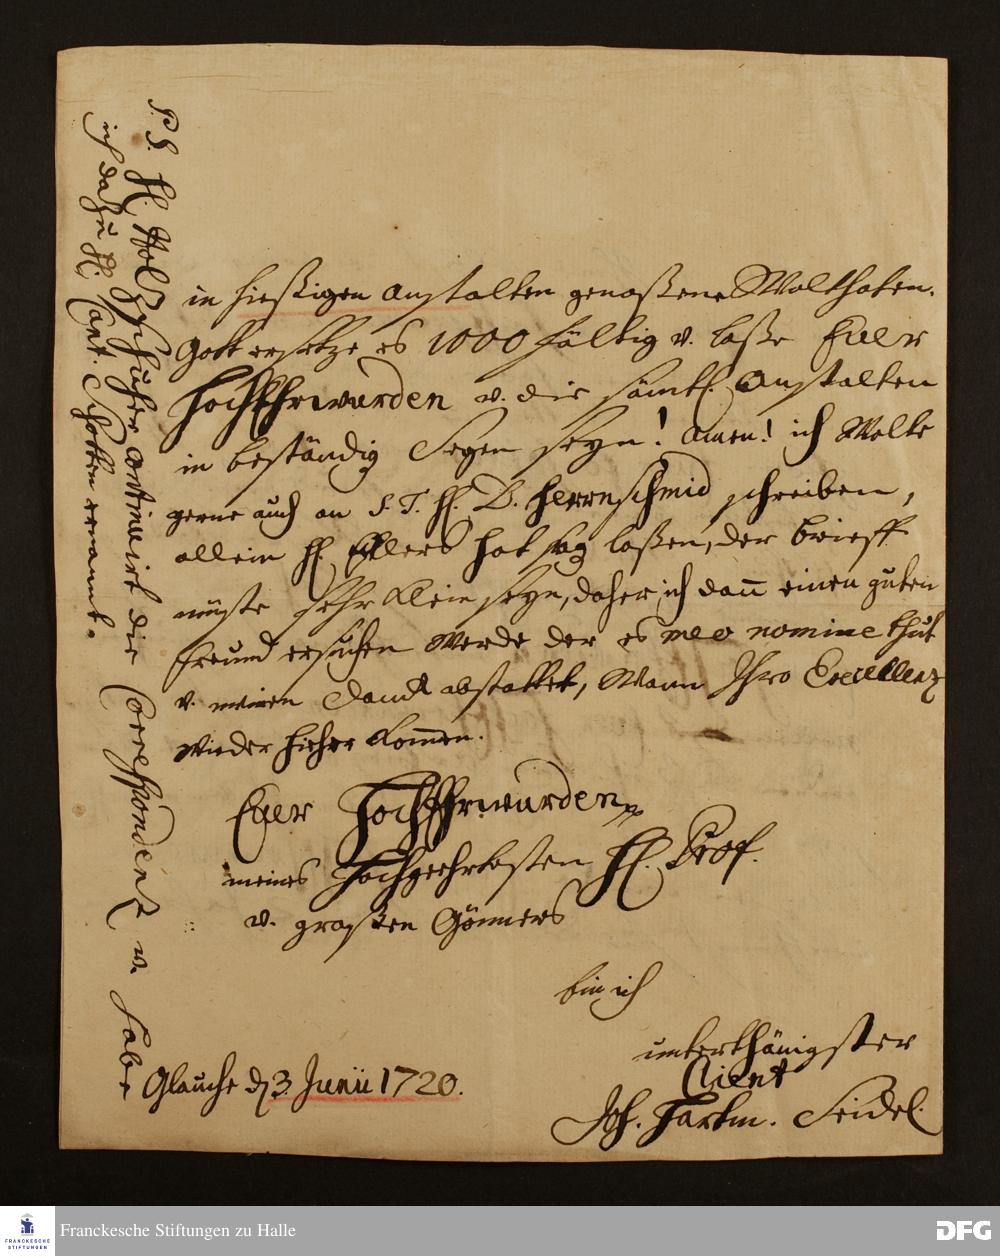 in hießigen Anstalten genoßene Wolthaten.
Gott ersetze es 1000 fältig v. laße Euer
HochEhrwurden v. die sämtl. Anstalten
in beständig Segen seyn! Amen! ich Wolte
gerne auch an S. T. H. D. Herrnschmid schreiben,
allein H. Ellers hat sag laßen, der brieff
müste sehr klein seyn, daher ich dañ einen guten
freund ersuchen Werde der es meo nomine thut
v. meinen Danck abstattet, Wann Ihro Excellenz
wieder hieher kom̄en.
Euer HochEhrwurden
meines Hochgeehrtesten H. Prof.
v. großen Gönners
bin ich
unterthänigster
Client
Joh. Hartm. Seidel.
Glauche d. 3. Junii 1720.
P. S. H. Holtzhuser continuirt die Correspondentz v. habe
ich dazu H. Cant. Schotten ernannt.
Franckesche Stiftungen zu Halle
FRANCKESCHE
STIFTUNGEN
DFG